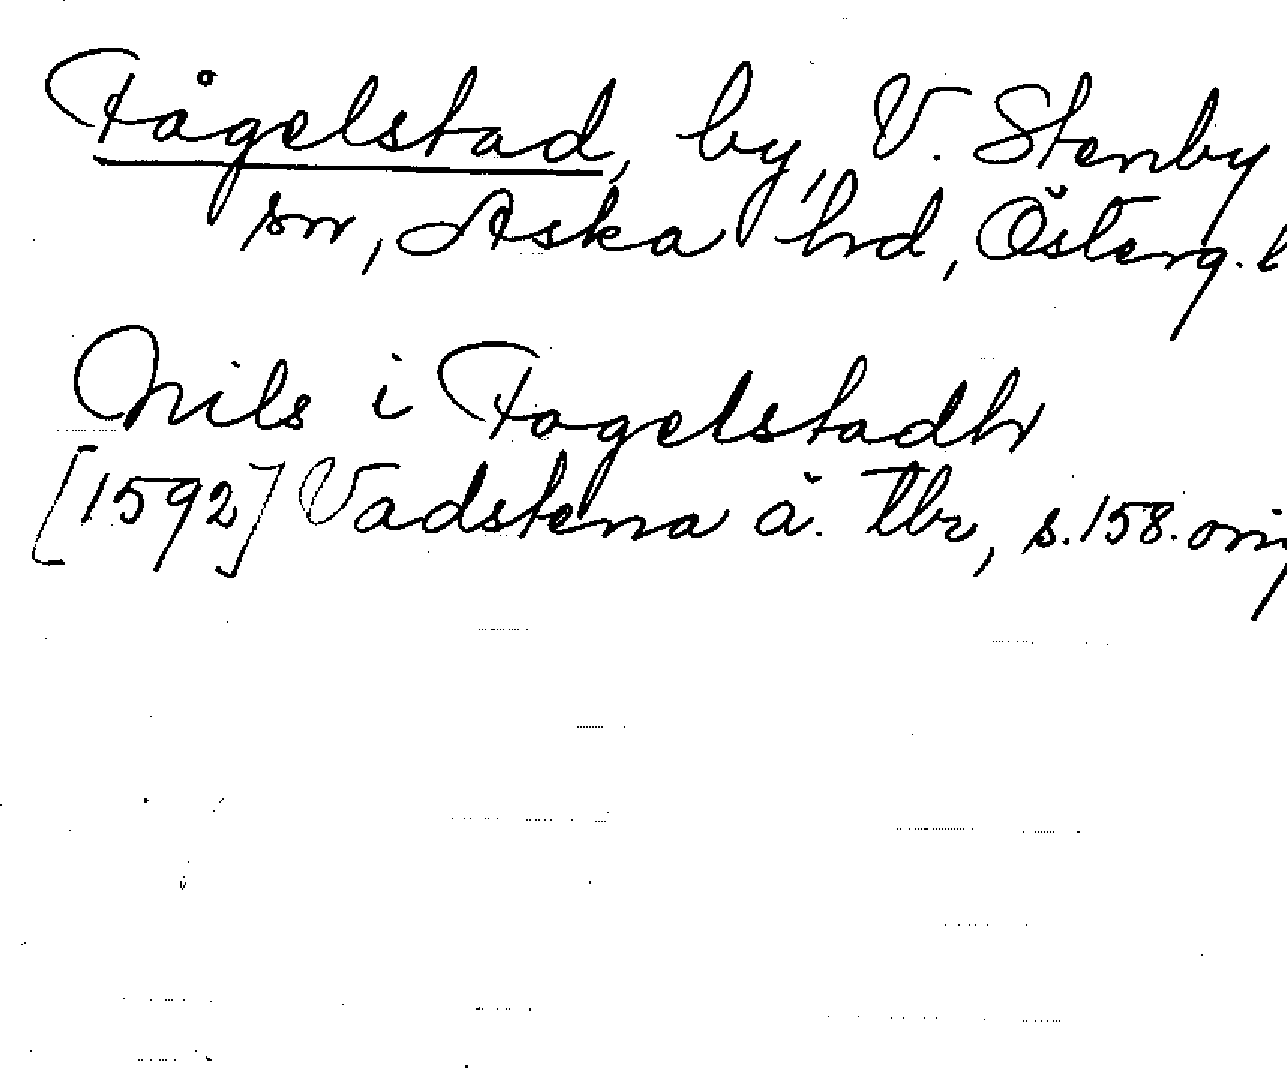 Fågelstad, by, V. Stenby
sn, Aska hrd, Österg. l
Nils i Fogelstadh
[1592] Vadstena ä. tbr, s. 158. orig